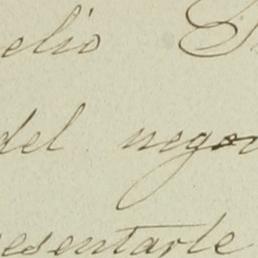 elio S
del nego
esentarle